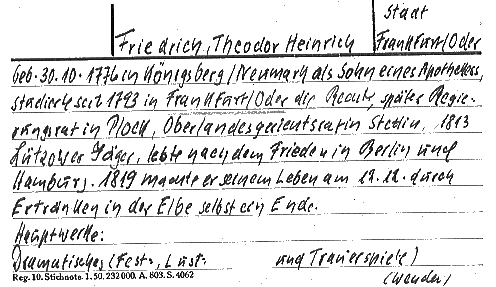 Stadt
Friedrich, Theodor Heinrich Frankfurt/Oder
geb. 30.10.1776 in Königsberg/Neumark als Sohn eines Apothekers,
studierte seit 1793 in Frankfurt/Oder die Rechte, später Regie-
rungsrat in Plock, Oberlandesgerichtsrat in Stettin, 1813
Lützower Jäger, lebte nach dem Frieden in Berlin und
Hamburg. 1819 machte er seinem Leben am 12.12. durch
Ertränken in der Elbe selbst ein Ende.
Hauptwerke:
Dramatisches (Fest-, Lust- und Trauerspiele)
Reg. 10. Stichnote. 1. 50. 232000. A. 803. S. 4062
(wenden)